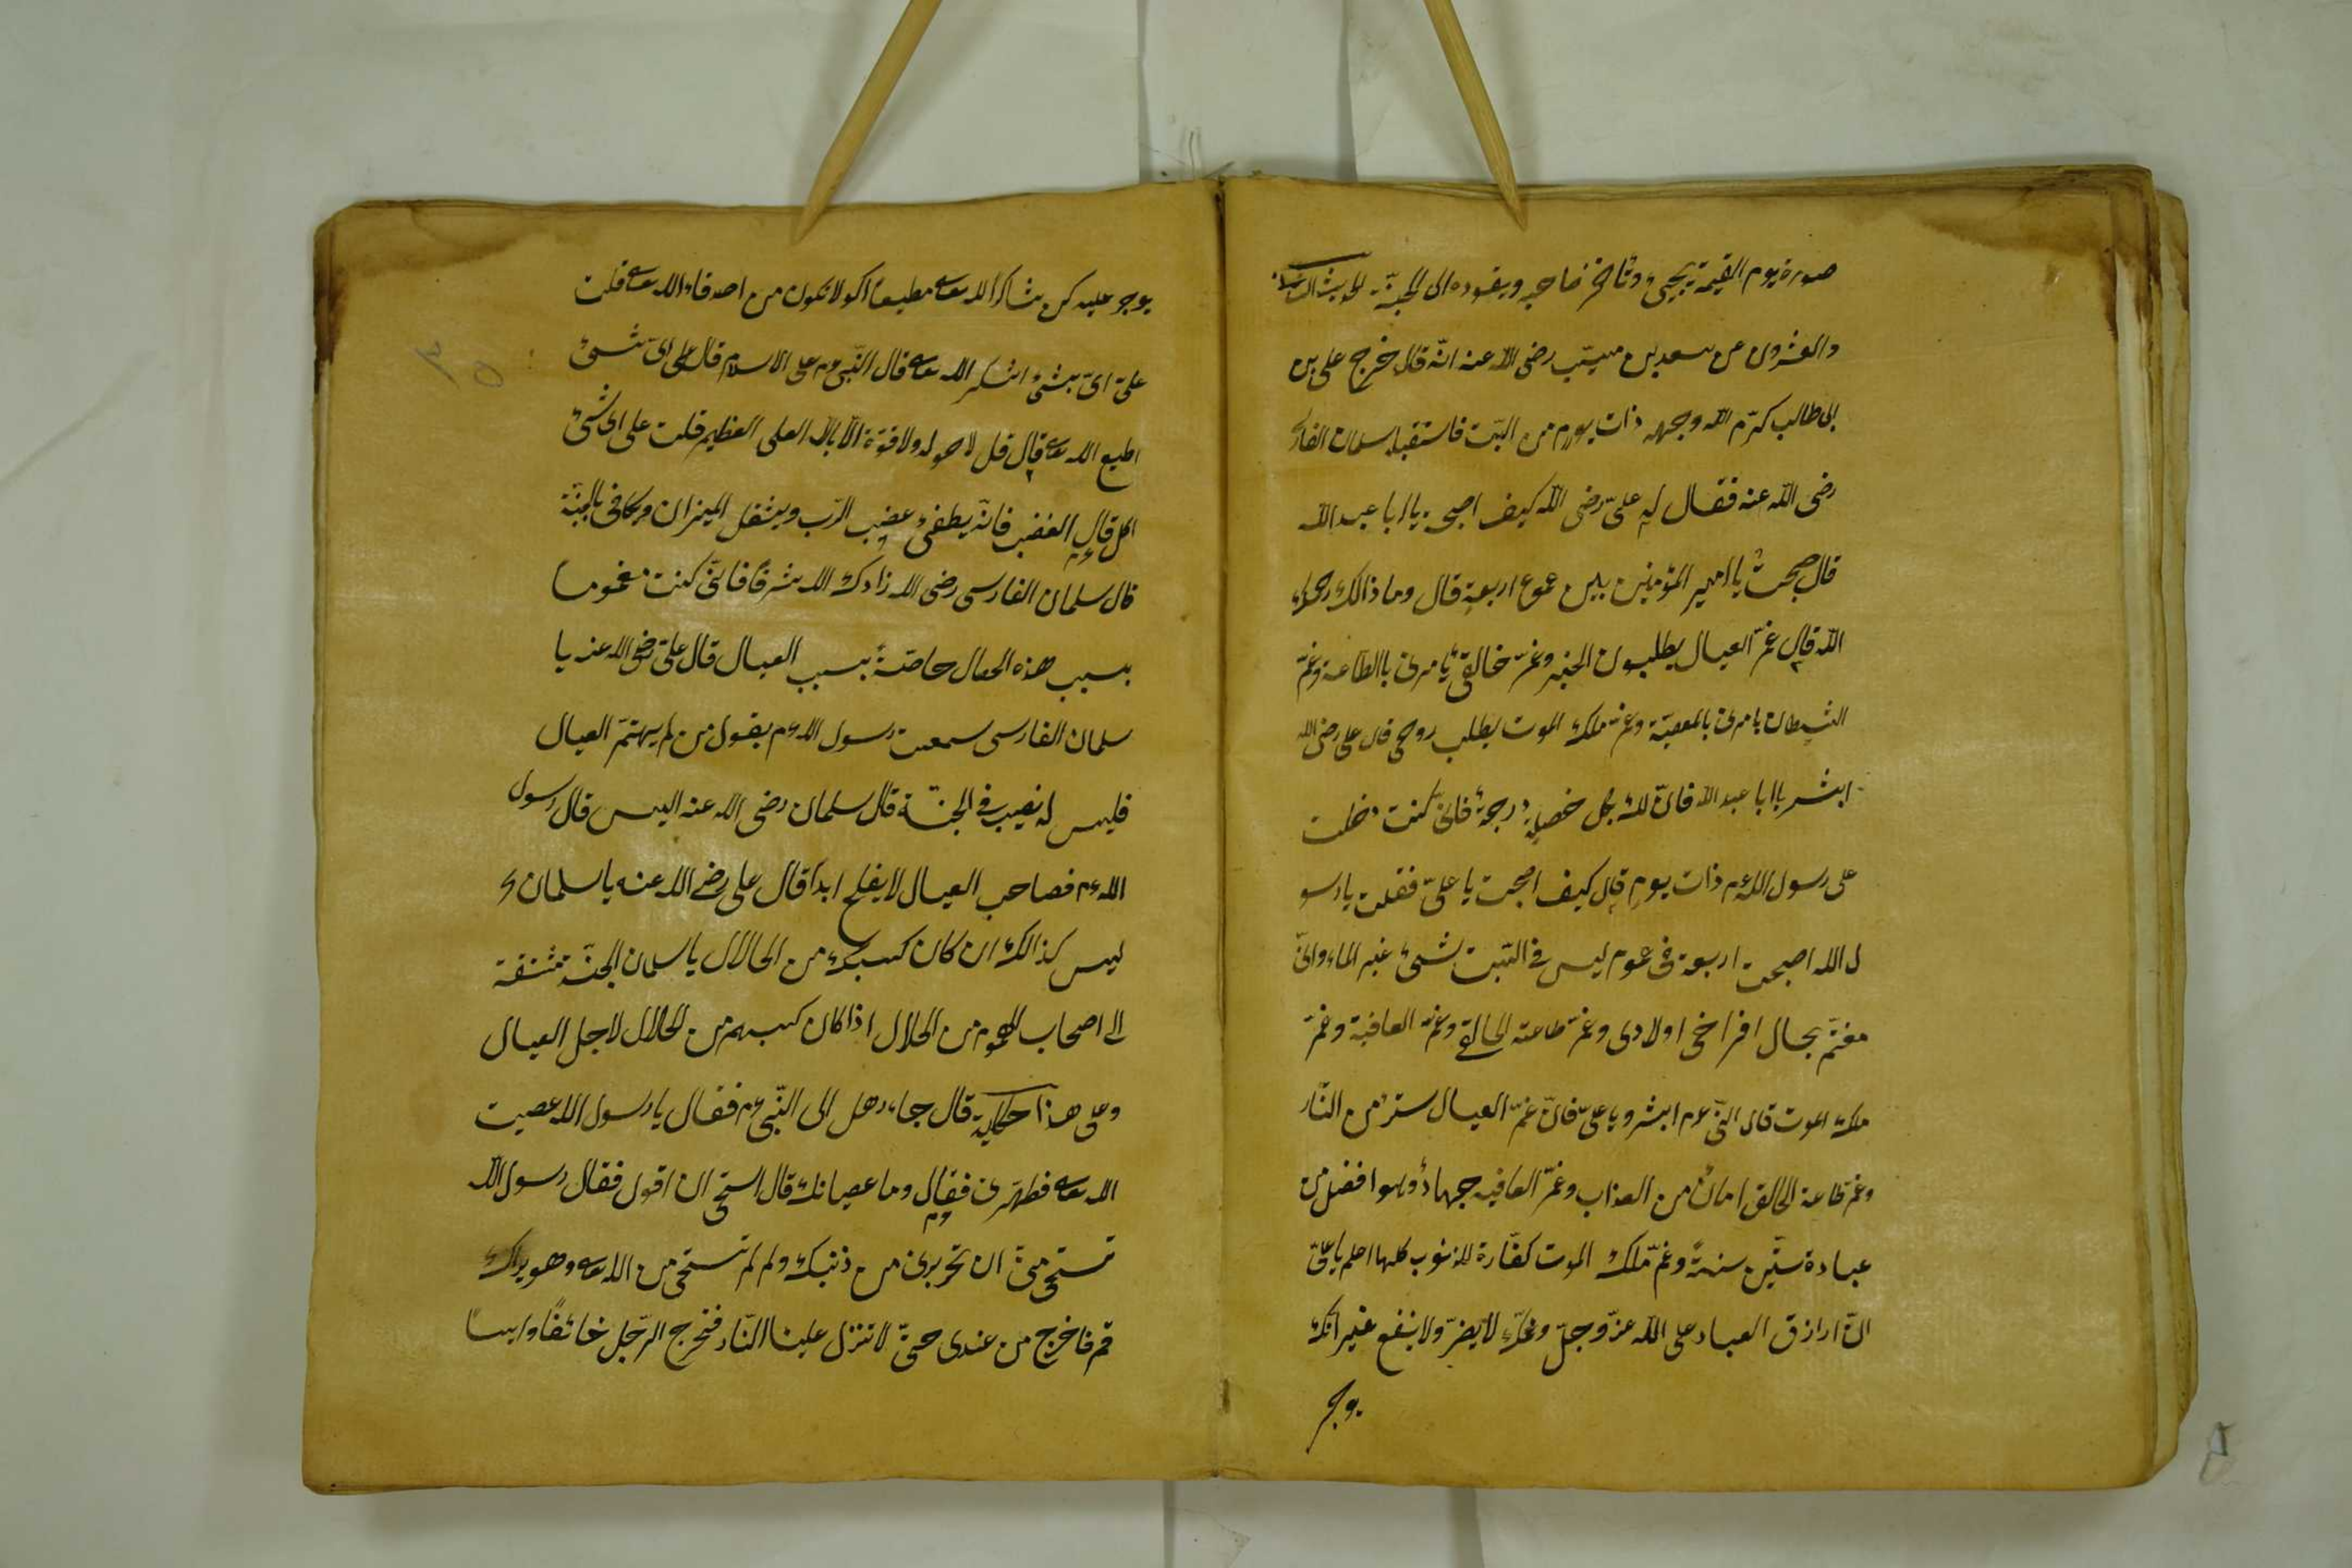 صورة يوم القيمة يجيئ وتأخذ صاحبه ويقوده الى الجنة الحديث الثالث
والعشرون عن سعد بن مسيّب رضى الله عنه انّه قال خرج على بن
ابى طالب كرّم الله وجهه ذات يوم من البيت فاستقبله سلمان الفارسى
رضى الله عنه فقال له علىّ رضى الله كيف اصبحت يا ابا عبد الله
قال صبحتُ يا امير المؤمنين بين غموم اربعةٍ قال وما ذالك رحمك
الله قال غمّ العيال يطلبون الخبز وغمّ خالقى يأمرنى باالطاعة وغمّ
الشيطان يامرنى بالمعصيّة وغمّ ملك الموت يطلب روحى قال على رضى الله
ابشر يا ابا عبد الله فانّ لك بكل خصلةٍ درجةً فانى كنت دخلت
على رسول الله عم ذات يومٍ قال كيف اصبحت يا علىّ فقلت يا رسو
ل الله اصبحت اربعة فى غموم ليس فى البيت شيئ غير الماء وانّى
مغتمّ بحال افراخى اولادى وغمّ طاعة الخالق وغمّ العاقبة وغمّ
ملك الموت قال النبّى عم ابشر ويا علىّ فانّ غمّ العيال سترٌ من النّار
وغمّ طاعة الخالق امانٌ من العذاب وغمّ العاقبه جهادٌ وهوا فضل من
عبادة ستّين سنةً وغمّ ملك الموت كفّارة للذنوب كلها اعلم يا علىّ
انّ ارازق العباد على الله عزّ وجلّ وغمّك لا يضرّ ولا ينفع غير انّك
يوجر
يوجر عليه كن شاكراً لله تعالى مطيعاً اكولا تكون من اصدقاء الله تعالى قلت
علىّ اىّ شئ اشكر الله تعالى قال النّبى عم على الاسلام قال على اىّ شئ
اطيع الله تعالى قال قل لا حول ولا قوّة الّا بالله العلى العظيم قلت على اى شئ
اكل قال الغضب فانّه يطفئ غضب الرّب ويثقل الميزان ويكافى بالجنّة
قال سلمان الفارسى رضى الله زادك الله شرفاً فانّى كنت مغموماً
بسبب هذه الحال خاصّةً بسبب العيال قال علىّ رضى الله عنه يا
سلمان الفارسى سمعت رسول الله عم يقول من لم يهتمّ العيال
فليس له نصيب فى الجنّة قال سلمان رضى الله عنه اليس قال رسول
الله عم فصاحب العيال لا يفلح ابداً قال على رضى الله عنه يا سلمان
ليس كذالك ان كان كسبك من الحلال يا سلمان الجنّة مشتقة
الى اصحاب الهموم من الحلال اذا كان كسبهم من الحلال لاجل العيال
وعلى هذا حكاية قال جاء رجل الى النّبى عم فقال يا رسول الله عصيت
الله تعالى فطهّرنى فقال وما عصيانك قال استحى ان اقول فقال رسول الله
تستحى منىّ ان تخبرنى من ذنبك ولم لم تستحى من الله تعالى وهو يراك
قم فاخرج من عندى حتىّ لا تنزل علينا النّار فخرج الرّجل خائفاً وايساً